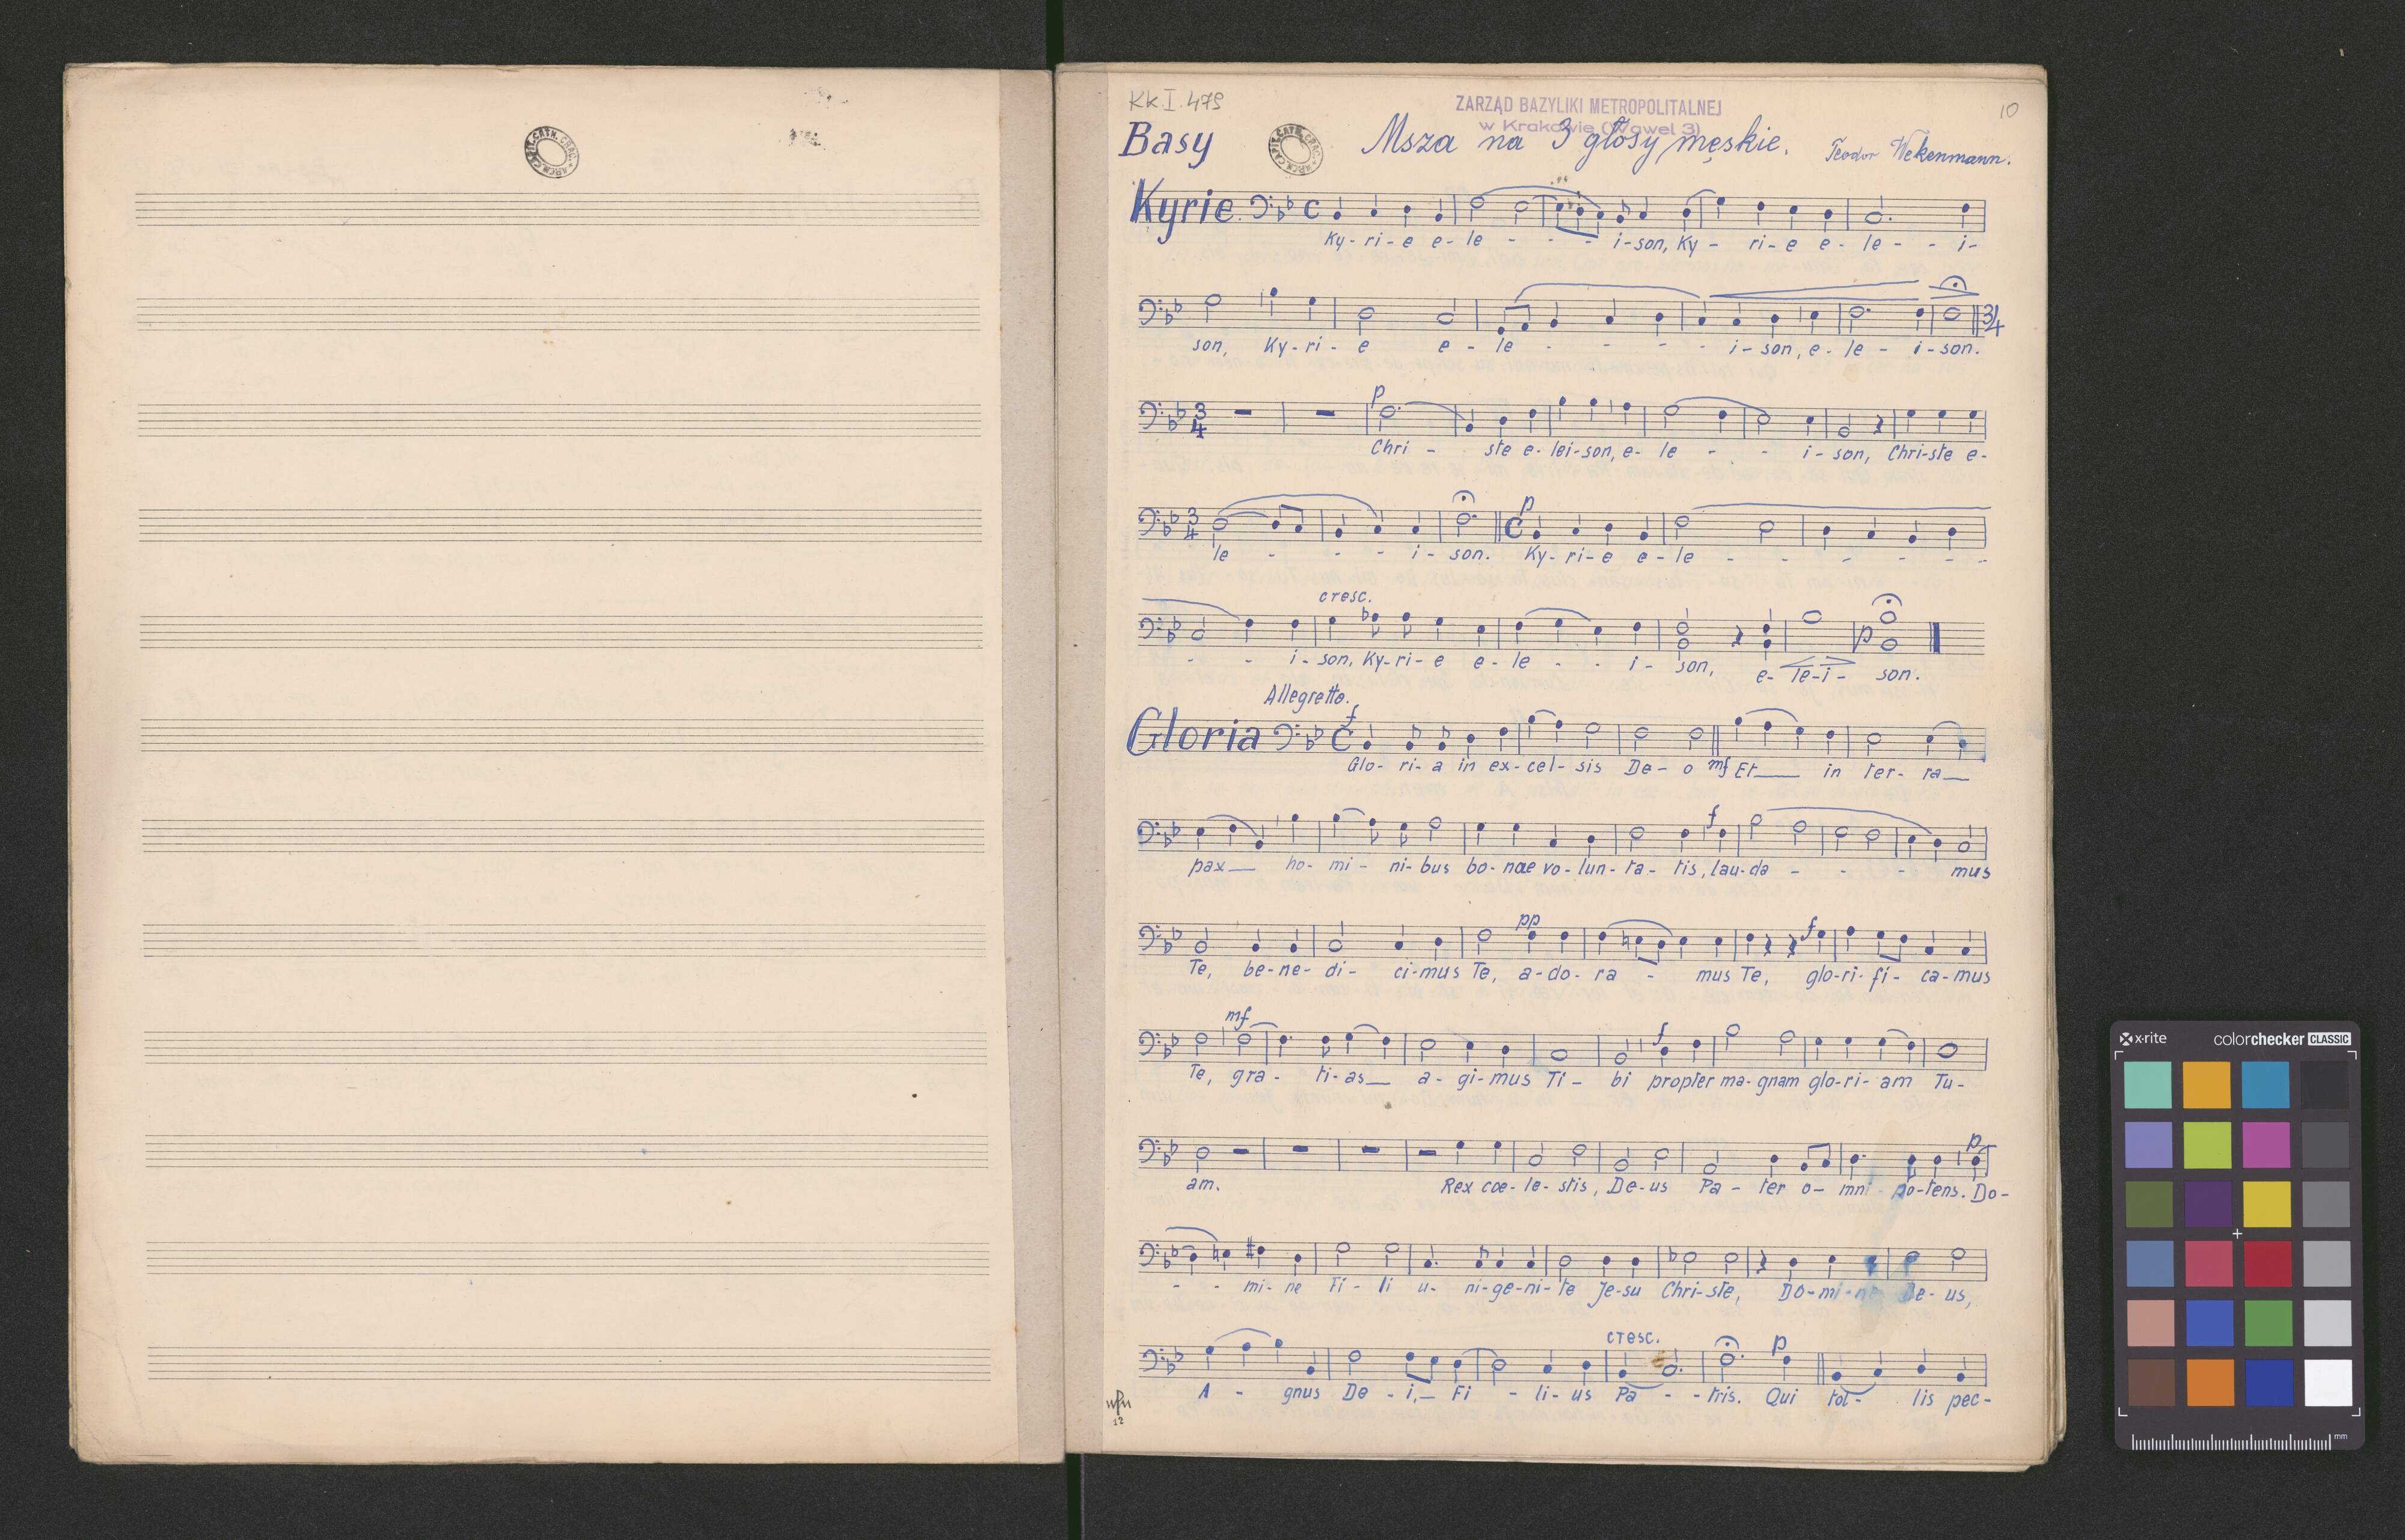 KK.I.479
ZARZĄD BAZYLIKI METROPOLITALNEJ
w Krakowie (Wawel 3)
10
Basy
Msza na 3 głosy męskie.
Teodor Wekenmann.
Kyrie
Ky-ri-e e-le - - - i-son, Ky- ri-e e-le - - i-
son, Ky-ri-e e-le - - - - i-son, e-le - i-son.
3/4
3 4
p
Chri - ste e-lei-son, e-le - - i-son, Chri-ste e-
3 4
C p
le - - - i-son. Ky-ri-e e-le - - - - - -
cresc.
p
- - i-son, Ky-ri-e e-le - - i-son, e-le-i-son.
Allegretto.
Gloria
C f
Glo-ri-a in ex-cel-sis De-o mf Et in ter-ra
f
pax ho-mi-ni-bus bo-nae vo-lun-ta-tis, lau-da - - - mus
pp f
Te, be-ne-di-ci-mus Te, a-do-ra - mus Te, glo-ri-fi-ca-mus
mf f
Te, gra-ti-as a-gi-mus Ti-bi propter ma-gnam glo-ri-am Tu-
p
am. Rex coe-le-stis, De-us Pa-ter o-mni-po-tens. Do-
- - mi-ne Fi-li u-ni-ge-ni-te Je-su Chri-ste, Do-mi-ne De-us,
cresc. p
A - gnus De-i, Fi - li-us Pa - - tris. Qui tol- lis pec-
12
x-rite
colorchecker CLASSIC
mm